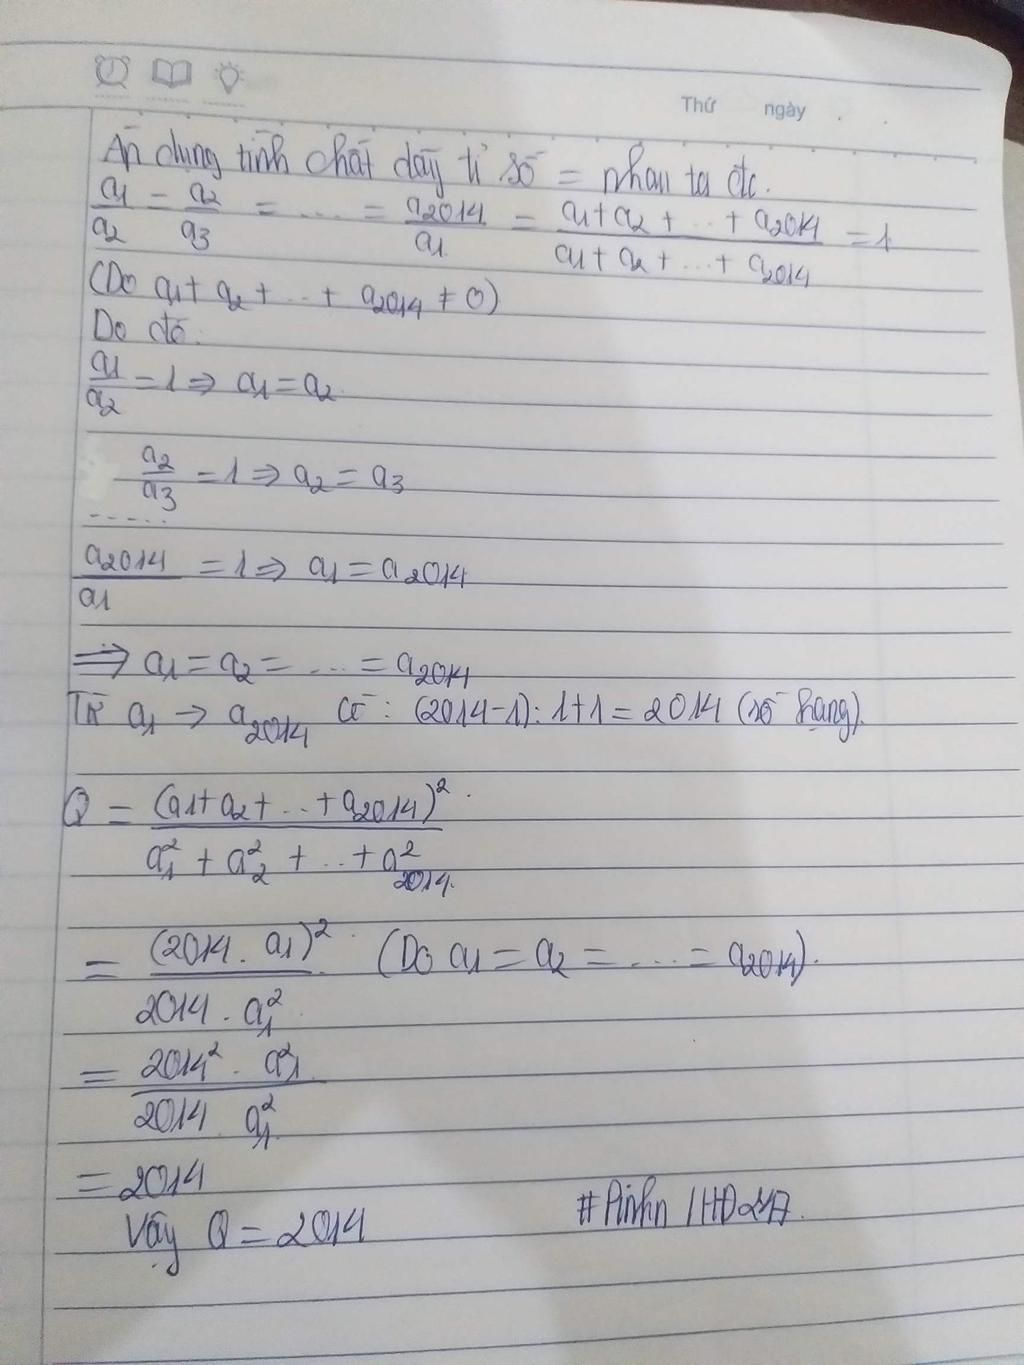 Thứ ngày . .
Áp dụng tính chất dãy tỉ số = nhau ta đc.
a1/a2 = a2/a3 = .... = a2014/a1 = a1+a2+...+a2014/a1+a2+...+a2014 = 1
(Do a1+a2+...+a2014 ≠ 0)
Do đó:
a1/a2 = 1 ⇒ a1 = a2.
a2/a3 = 1 ⇒ a2 = a3
.....
a2014/a1 = 1 ⇒ a1 = a2014
⇒ a1 = a2 = .... = a2014
Từ a1 → a2014 có : (2014-1):1+1 = 2014 (số hạng).
Q = (a1+a2+...+a2014)²/a1²+a2²+...+a2014².
= (2014.a1)²/2014.a1² (Do a1 = a2 = .... = a2014).
= 2014².a1²/2014 a1²
= 2014
Vậy Q = 2014